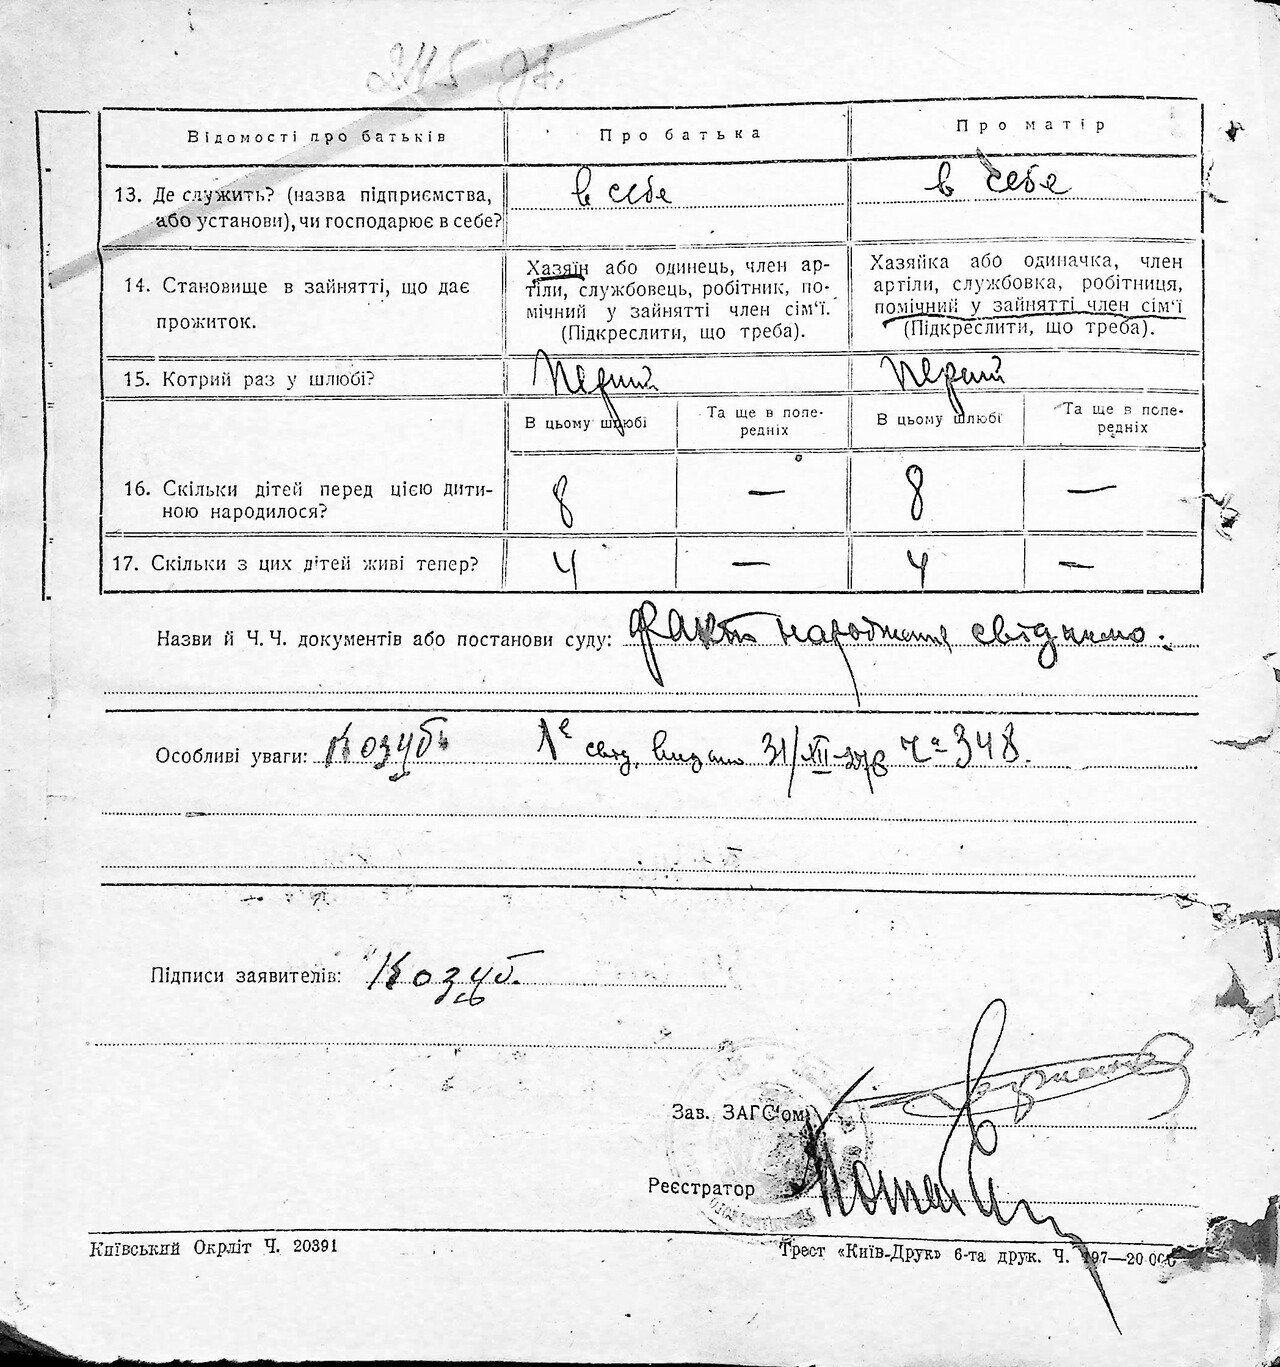 245
Відомості про батьків
Про батька
Про матір
13. Де служить? (назва підприємства, або установи), чи господарює в себе?
в себе
в себе
14. Становище в зайнятті, що дає прожиток.
Хазяїн або одинець, член ар-
тіли, службовець, робітник, по-
мічний у зайнятті член сім'ї.
(Підкреслити, що треба).
Хазяйка або одиначка, член
артіли, службовка, робітниця,
помічний у зайнятті член сім'ї
(Підкреслити, що треба).
15. Котрий раз у шлюбі?
перший
перший
В цьому шлюбі
Та ще в попе-
редніх
В цьому шлюбі
Та ще в попе-
редніх
16. Скільки дітей перед цією дити-
ною народилося?
8 — 8 —
17. Скільки з цих дітей живі тепер?
4 — 4 —
Назви й Ч.Ч. документів або постанови суду: факт народження
Особливі уваги: Козуб свід. видано 31/XII ч 348.
Підписи заявителів: Козуб.
Зав. ЗАГС'ом
Реєстратор
Київський Окрліт Ч. 20391
Трест «Київ-Друк» 6-та друк. Ч.